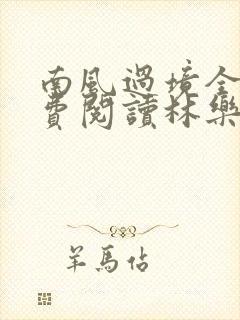 南風過境全
費閱讀林樂
羊馬佔